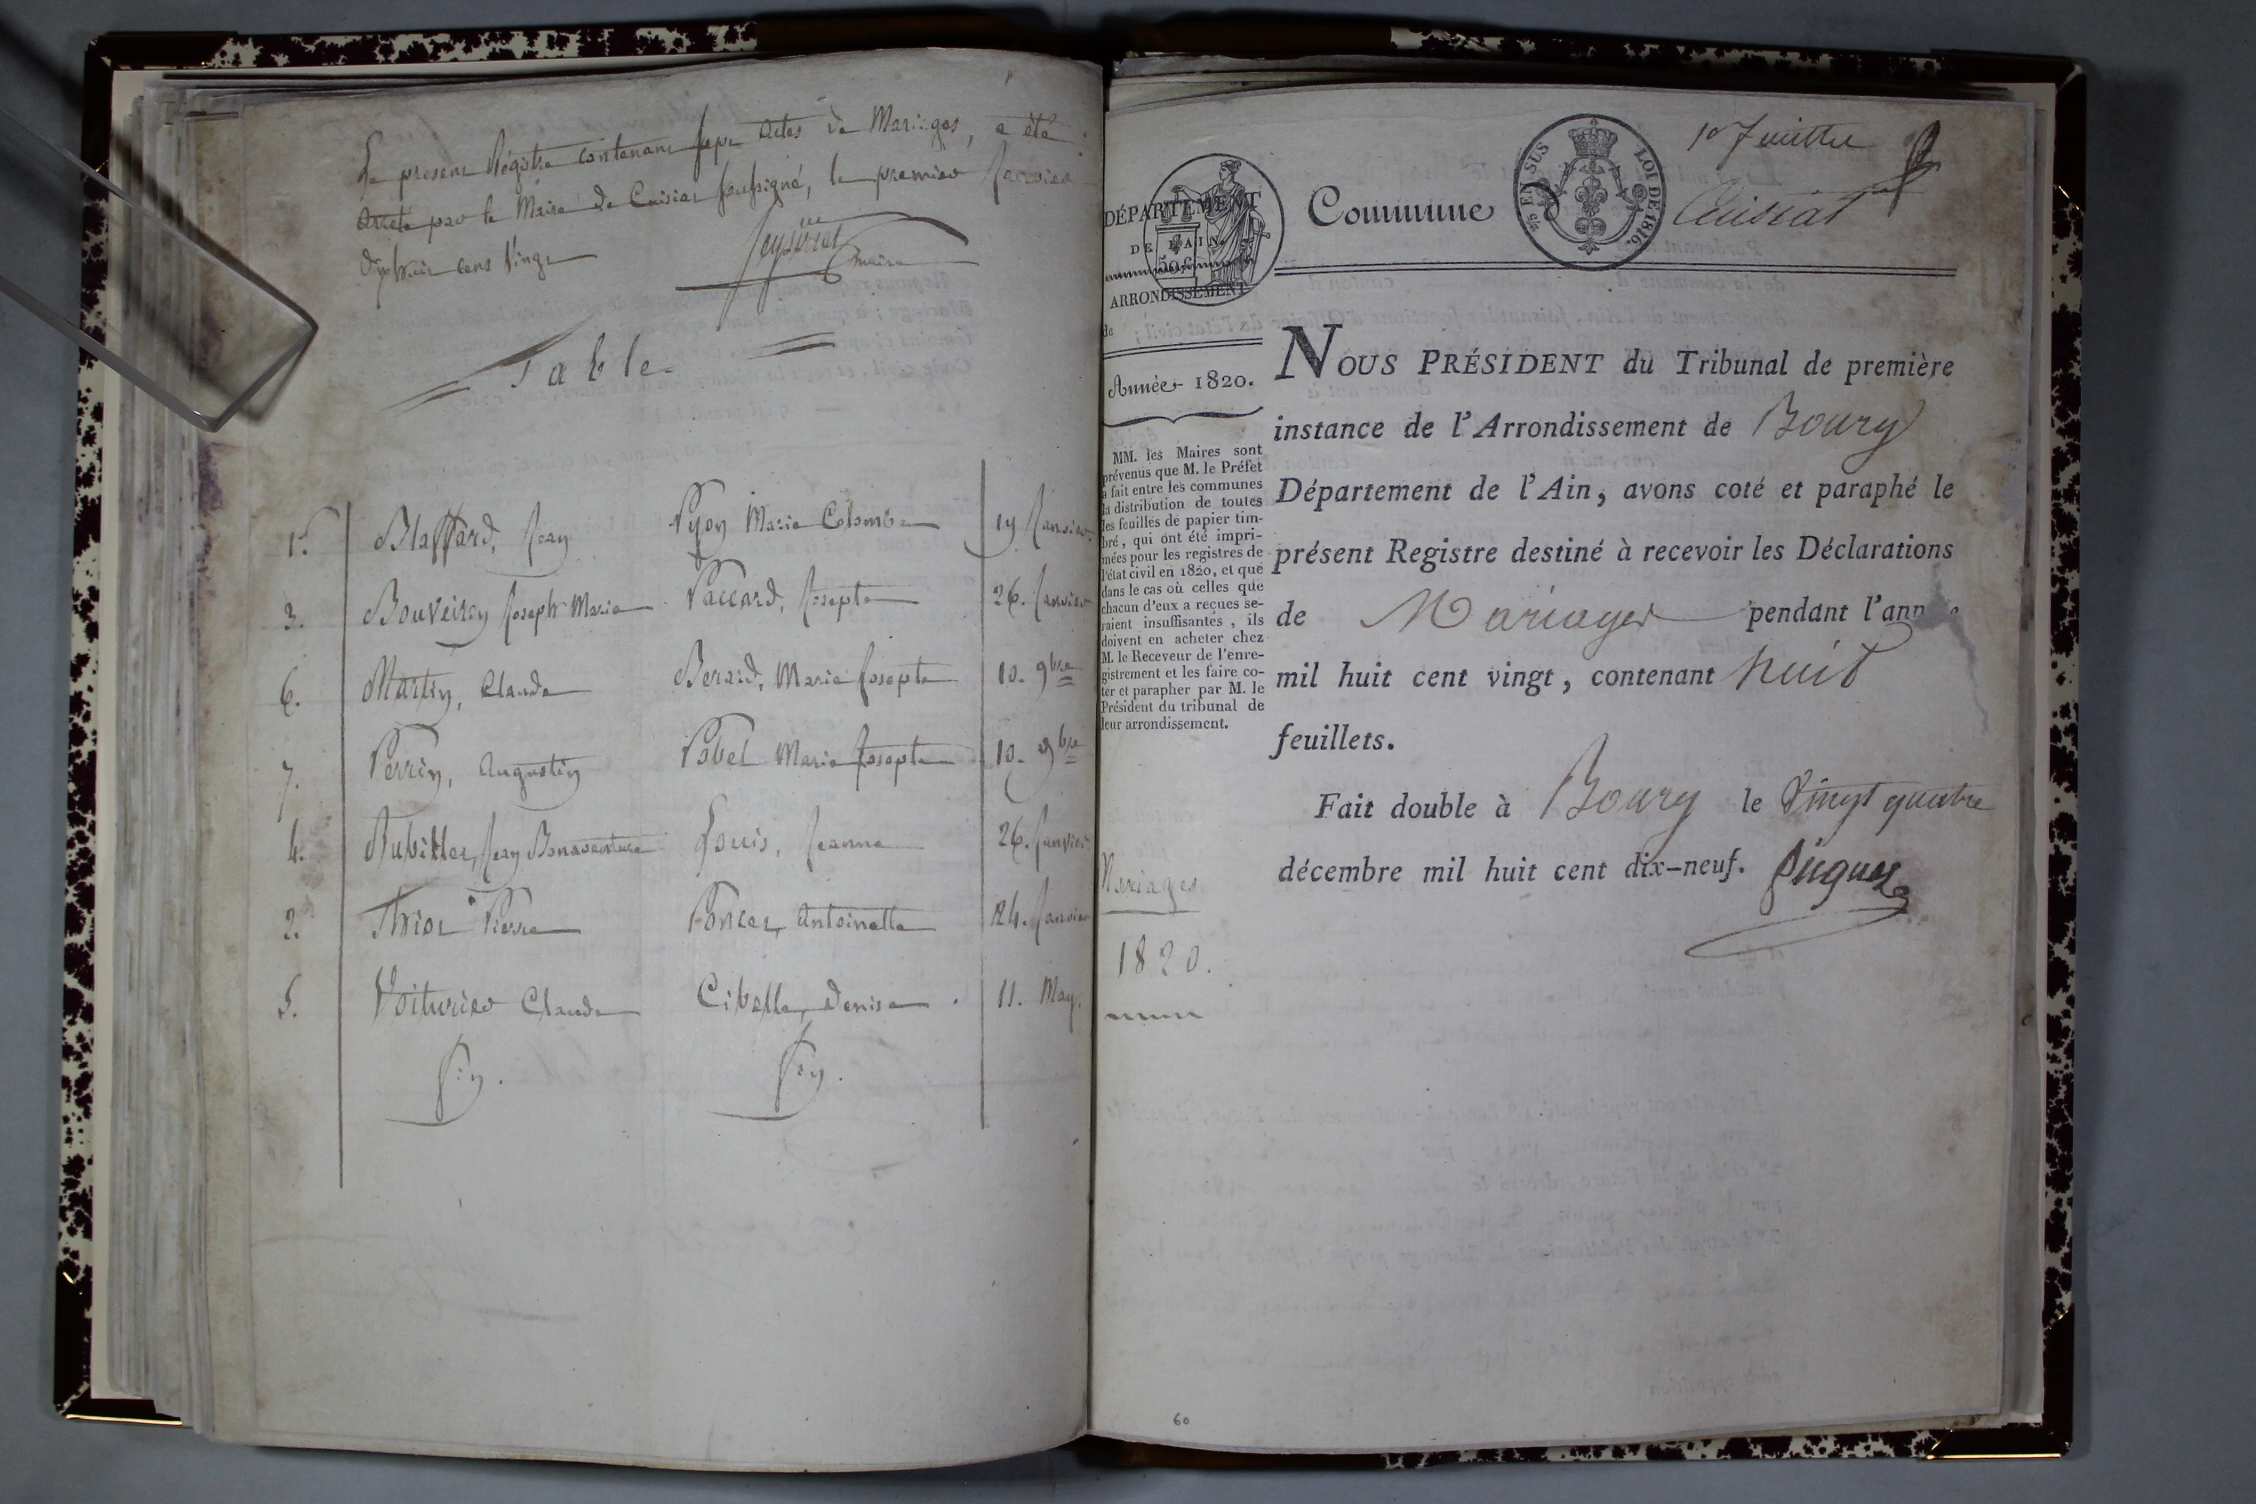 Le present Régistre contenant sept actes de Mariages, a été
arreté par le Maire de Cuisiat soussigné, le premier Janvier
dix huit cens vingt
maire
Table
1. Blaffard, Jean Pyon Marie Colombe 19 Janvier
3. Bouveiron Joseph Marie Paccard, Josepte 26. Janvier
6. Martin, Claude Berard, Marie Josepte 10. 9bre
7. Perrin, Augustin Pobel Marie Josepte 10. 9bre
4. Rubillet, Jean Bonaventure Louis, Jeanne 26. Janvier
2. Pierre Poncet, Antoinette 24. Janvier
5. Voiturier Claude Cibelle, Denise 11. May.
Fin. Fin.
1er Feuillet
EN SUS LOI DE 1816.
DÉPARTEMENT
DE L'AIN.
50 c
ARRONDISSEMENT
de
Commune d Cuisiat
Année 1820.
MM. les Maires sont
prévenus que M. le Préfet
a fait entre les communes
la distribution de toutes
les feuilles de papier tim-
bré, qui ont été impri-
mées pour les registres de
l'état civil en 1820, et que
dans le cas où celles que
chacun d'eux a reçues se-
raient insuffisantes, ils
doivent en acheter chez
M. le Receveur de l'enre-
gistrement et les faire co-
ter et parapher par M. le
Président du tribunal de
leur arrondissement.
Mariages
1820.
NOUS PRÉSIDENT du Tribunal de première
instance de l'Arrondissement de Bourg
Département de l'Ain, avons coté et paraphé le
présent Registre destiné à recevoir les Déclarations
de Mariages pendant l'année
mil huit cent vingt, contenant huit
feuillets.
Fait double à Bourg le vingt quatre
décembre mil huit cent dix-neuf.
60